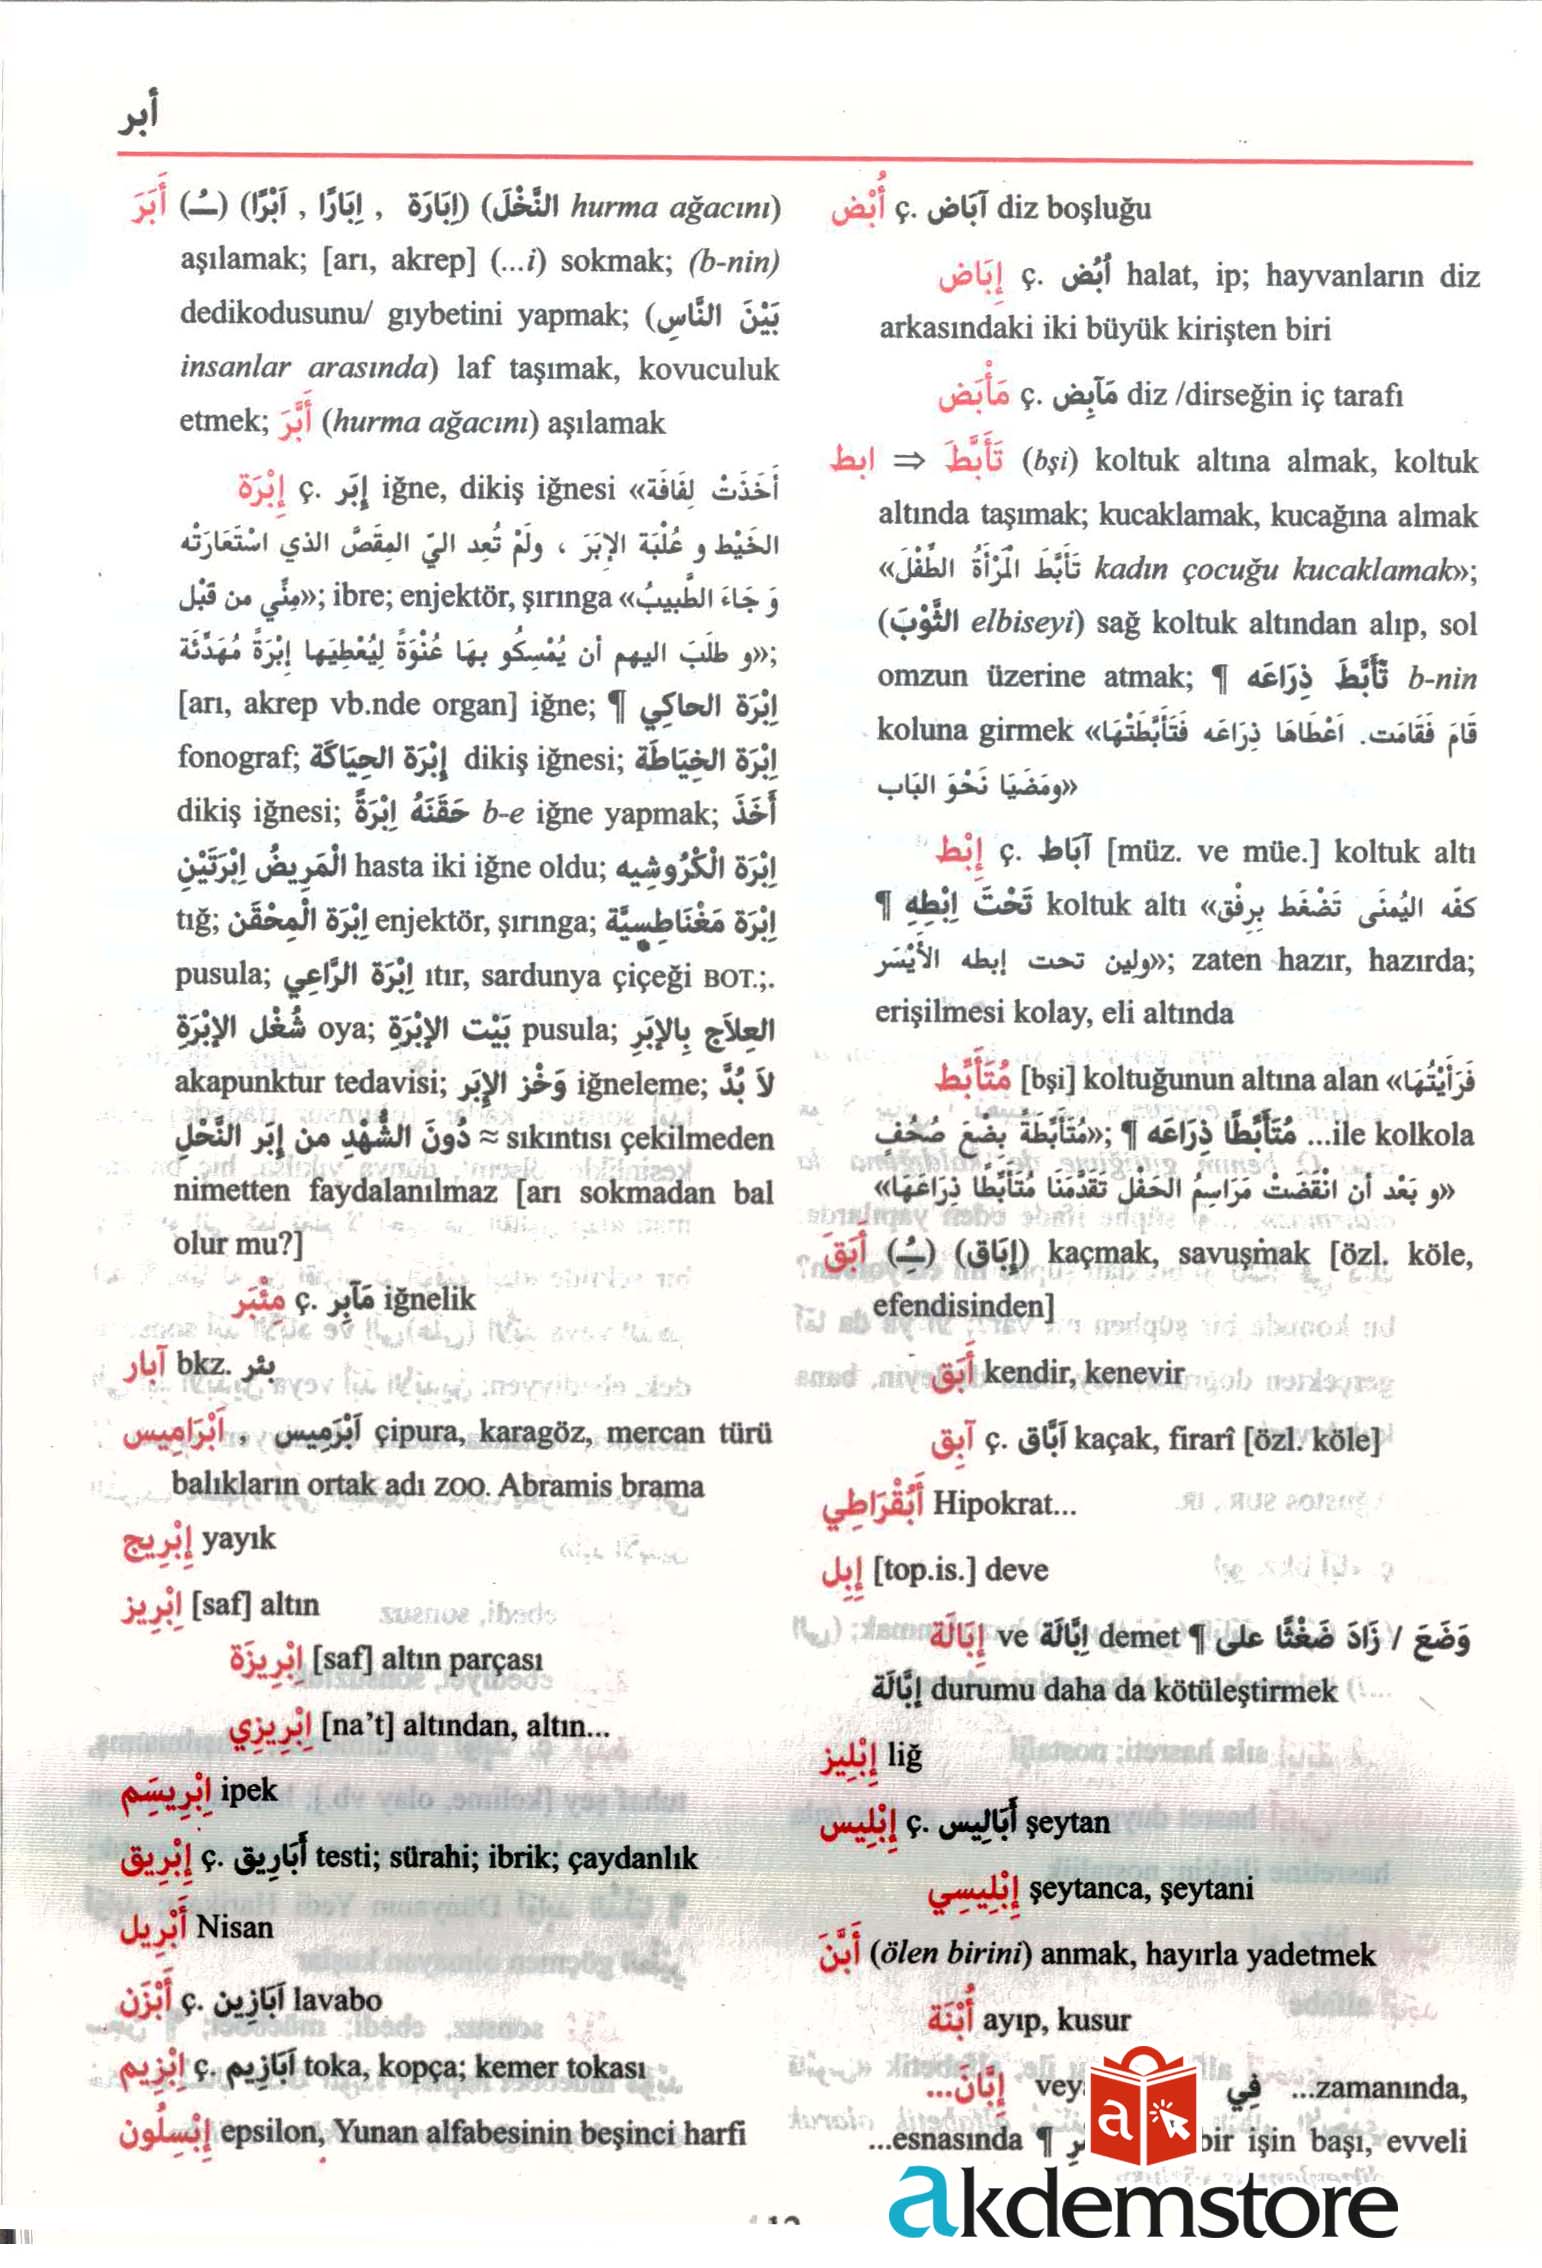 أبر
أَبَرَ (ـُـ) (اَبْرًا , اِبَارًا , اِبَارَة) (النَّخْلَ hurma ağacını)
aşılamak; [arı, akrep] (...i) sokmak; (b-nin)
dedikodusunu/ gıybetini yapmak; (بَيْنَ النَّاسِ
insanlar arasında) laf taşımak, kovuculuk
etmek; أَبَّرَ (hurma ağacını) aşılamak
إِبْرَة ç. إِبَر iğne, dikiş iğnesi «أَخَذَتْ لِفَافَة
الخَيْط و عُلْبَة الإبَرَ ، ولَمْ تُعِد اليّ المِقَصَّ الذي اسْتَعَارَتْه
مِنِّي من قَبْل»; ibre; enjektör, şırınga «وَ جَاءَ الطَّبيبُ
و طَلَبَ اليهم أن يُمْسِكُو بهَا عُنْوَةً لِيُعْطِيَها إبْرَةً مُهَدِّئَة»;
[arı, akrep vb.nde organ] iğne; ¶ اِبْرَة الحاكِي
fonograf; اِبْرَة الحِيَاكَة dikiş iğnesi; اِبْرَة الخِيَاطَة
dikiş iğnesi; حَقَنَهُ اِبْرَةً b-e iğne yapmak; أَخَذَ
الْمَرِيضُ اِبْرَتَيْنِ hasta iki iğne oldu; اِبْرَة الْكْرُوشِيه
tığ; اِبْرَة الْمِحْقَن enjektör, şırınga; اِبْرَة مَغْنَاطِسِيَّة
pusula; اِبْرَة الرَّاعِي ıtır, sardunya çiçeği BOT.;.
شُغْل الإبْرَةِ oya; بَيْت الإبْرَةِ pusula; العِلاَج بِالإبَرِ
akapunktur tedavisi; وَخْز الإبَر iğneleme; لاَ بُدَّ
دُونَ الشُّهْدِ من إبَر النَّحْل ≈ sıkıntısı çekilmeden
nimetten faydalanılmaz [arı sokmadan bal
olur mu?]
مِئْبَر ç. مَآبِر iğnelik
آبار bkz. بئر
اَبْرَامِيس , اَبْرَمِيس çipura, karagöz, mercan türü
balıkların ortak adı ZOO. Abramis brama
إِبْرِيج yayık
اِبْرِيز [saf] altın
اِبْرِيزَة [saf] altın parçası
اِبْرِيزِي [na't] altından, altın...
اِبْرِيسَم ipek
إِبْرِيق ç. أَبَارِيق testi; sürahi; ibrik; çaydanlık
أَبْرِيل Nisan
أَبْزَن ç. اَبَازِين lavabo
اِبْزِيم ç. اَبَازِيم toka, kopça; kemer tokası
إِبْسِلُون epsilon, Yunan alfabesinin beşinci harfi
أُبْض ç. آبَاض diz boşluğu
إِبَاض ç. اُبُض halat, ip; hayvanların diz
arkasındaki iki büyük kirişten biri
مَأْبَض ç. مَآبِض diz /dirseğin iç tarafı
ابط ⇒ تَأَبَّطَ (bşi) koltuk altına almak, koltuk
altında taşımak; kucaklamak, kucağına almak
«تَأَبَّطَ الْمَرْأَةُ الطِّفْلَ kadın çocuğu kucaklamak»;
(الثَّوْبَ elbiseyi) sağ koltuk altından alıp, sol
omzun üzerine atmak; ¶ تَأَبَّطَ ذِرَاعَه b-nin
koluna girmek «قَامَ فَقَامَت. اَعْطَاهَا ذِرَاعَه فَتَأَبَّطَتْهَا
ومَضَيَا نَحْوَ البَاب»
إِبْط ç. آبَاط [müz. ve müe.] koltuk altı
¶ تَحْتَ اِبْطِهِ koltuk altı «كفّه اليُمْنَى تَضْغَط بِرِفْق
ولين تحت إبطه الأَيْسَر»; zaten hazır, hazırda;
erişilmesi kolay, eli altında
مُتَأَبِّط [bşi] koltuğunun altına alan «فَرَأَيْتُهَا
مُتَأَبِّطَةً بِضْعَ صُحُفٍ»; ¶ مُتَأَبِّطًا ذِرَاعَه ...ile kolkola
«و بَعْد أن انْقَضَتْ مَرَاسِمُ الحَفْل تَقَدَّمَنَا مُتَأَبِّطًا ذِرَاعَهَا»
أَبَقَ (ـِـُ) (إبَاق) kaçmak, savuşmak [özl. köle,
efendisinden]
أَبَق kendir, kenevir
آبِق ç. اَبَّاق kaçak, firarî [özl. köle]
أَبُقْرَاطِي Hipokrat...
إِبِل [top.is.] deve
إِبَالَة ve اِبَّالَة demet ¶ وَضَعَ / زَادَ ضَغْثًا على
اِبَّالَة durumu daha da kötüleştirmek
إِبْلِيز liğ
إِبْلِيس ç. أَبَالِيس şeytan
إِبْلِيسِي şeytanca, şeytani
أَبَّنَ (ölen birini) anmak, hayırla yadetmek
أُبْنَة ayıp, kusur
إِبَّانَ... vey فِي ...zamanında,
...esnasında ¶ bir işin başı, evveli
a
akdemstore